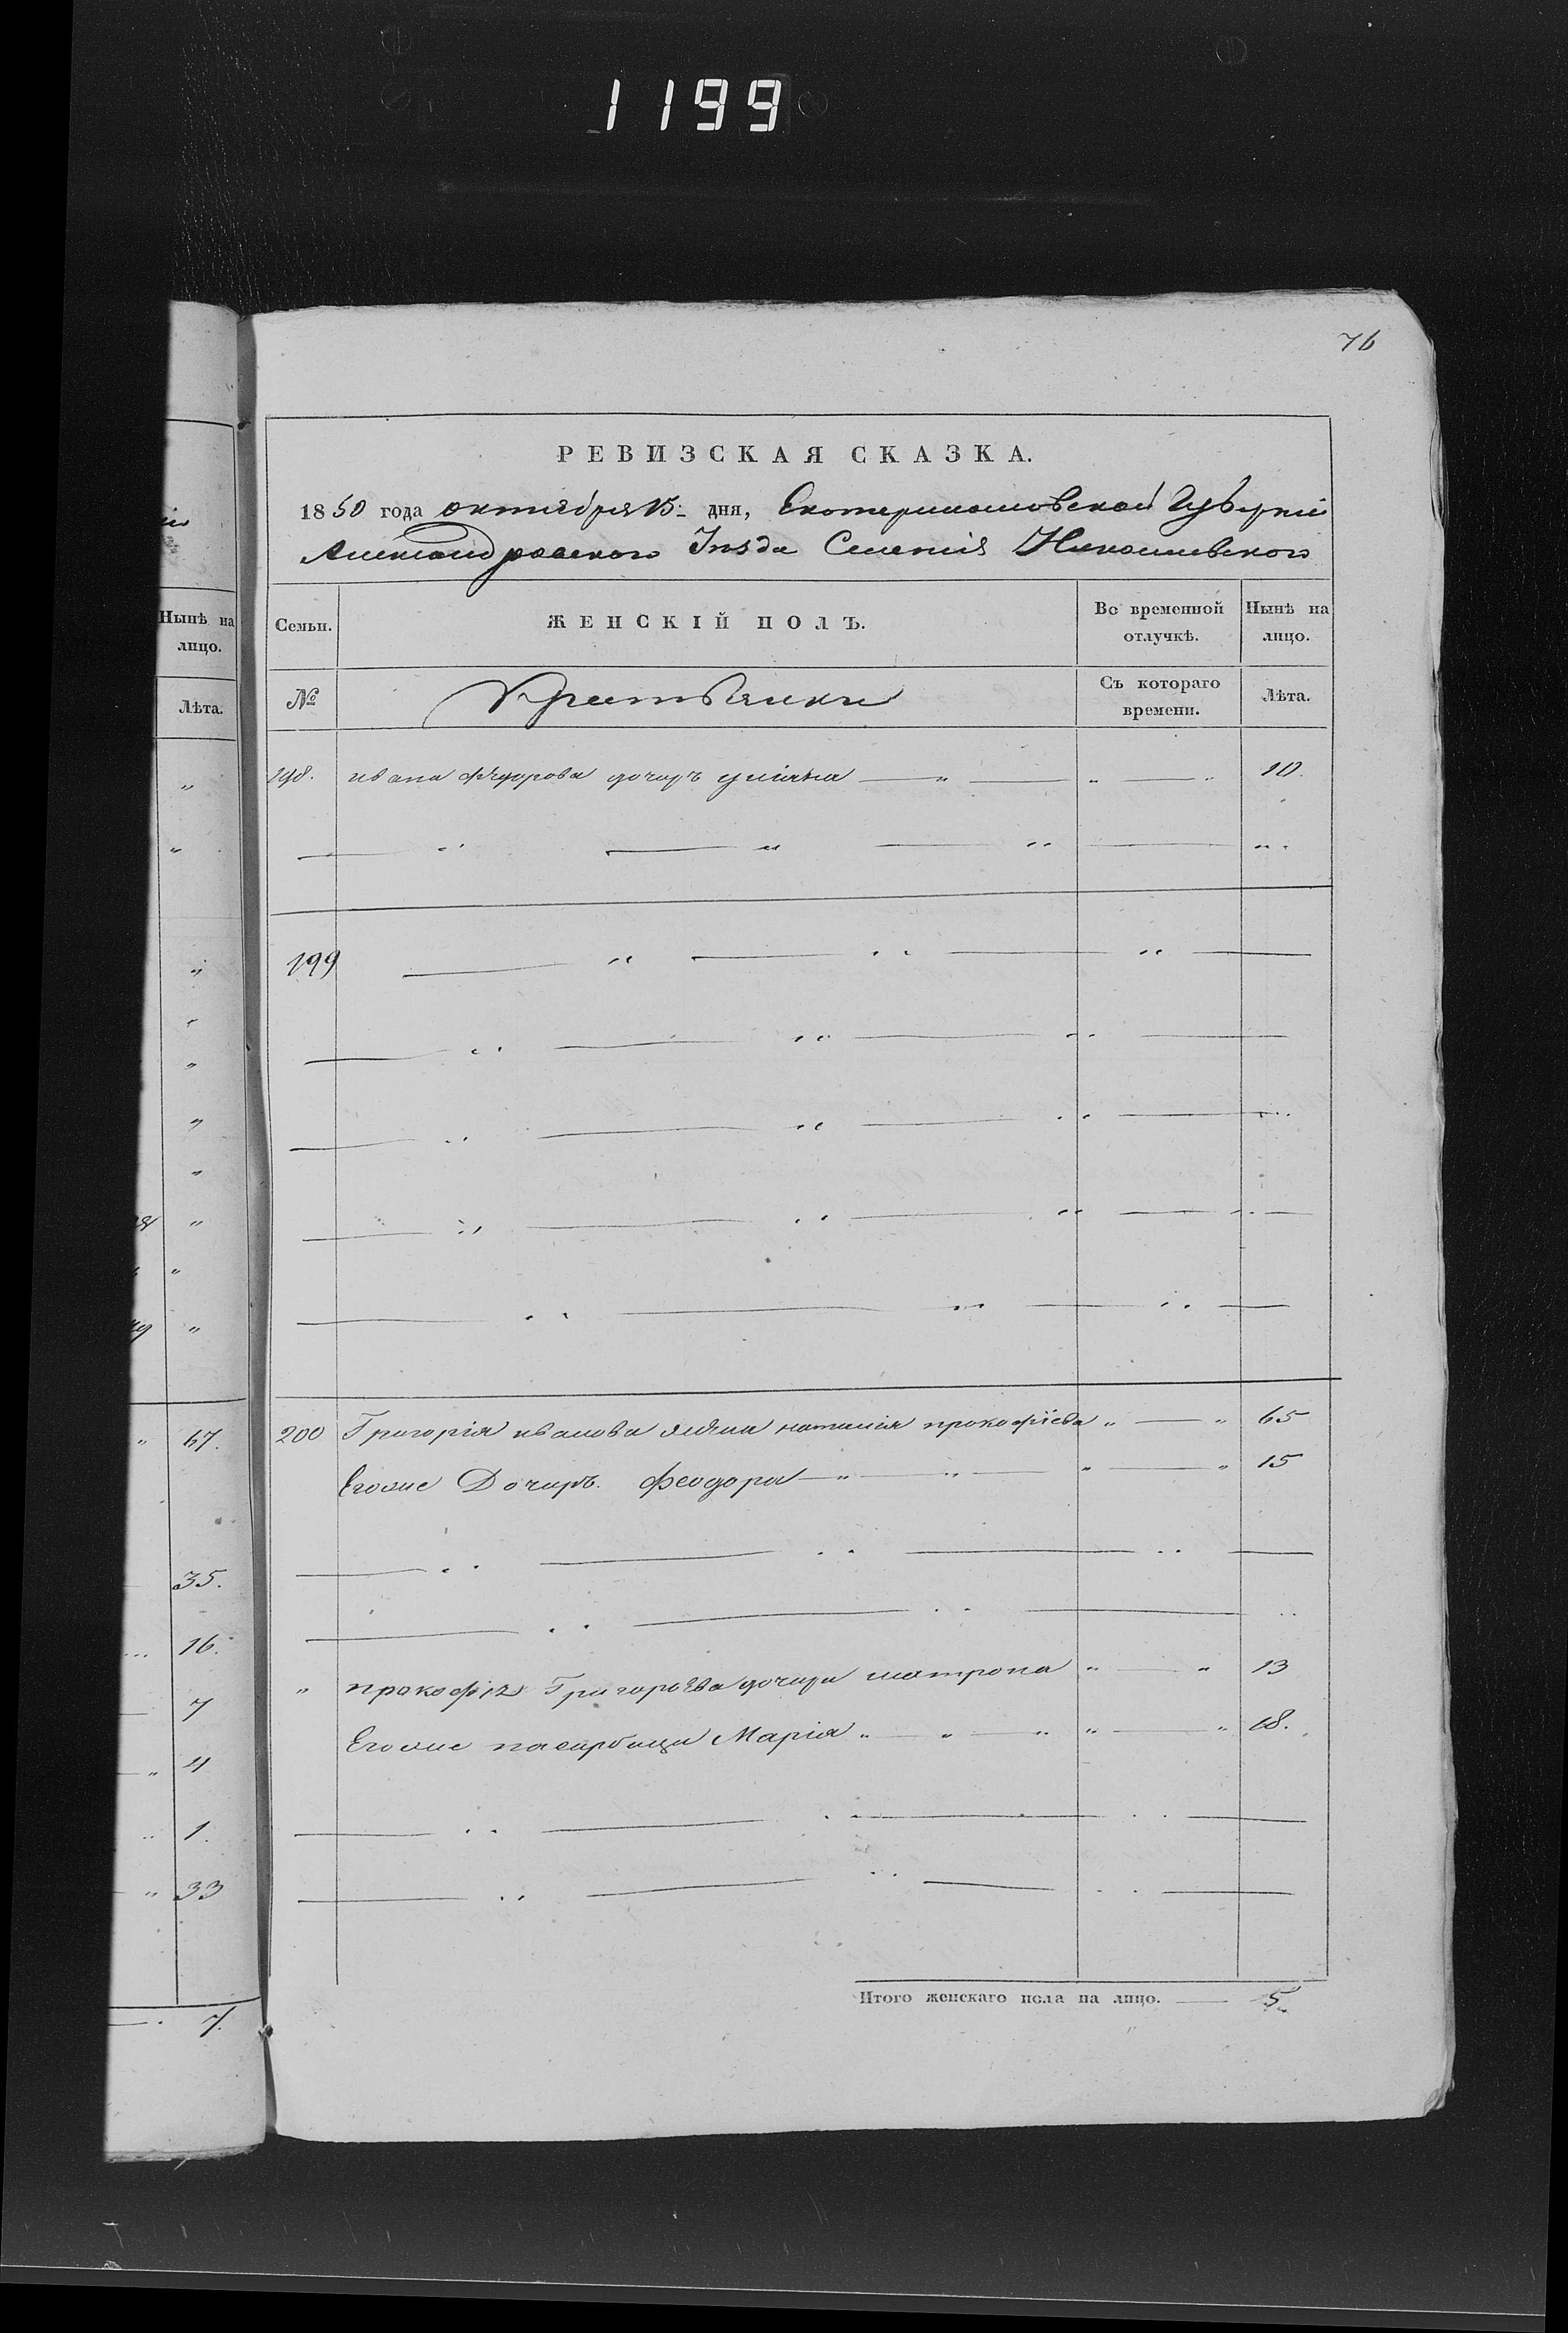 1199
76
РЕВИЗСКАЯ СКАЗКА.
1850 года октября 15 дня, Екатеринославской Губерніи
Александровского Уѣзда Селенія Николаевского
Нынѣ на лицо.
Лѣта.
67.
35.
16.
7
4
1.
33
7.
Семьи.
ЖЕНСКІЙ ПОЛЪ.
Во временной отлучкѣ.
Нынѣ на лицо.
№
Крестьянки
Съ котораго времени.
Лѣта.
198. ивана Федорова дочеръ уліяна 10.
199
200 Григорія иванова жена наталія прокофіева 65
Егоже Дочеръ Феодора 15
прокофія Григорьева дочери матрона 13
Егоже Марія 18.
Итого женскаго пола на лицо. 5